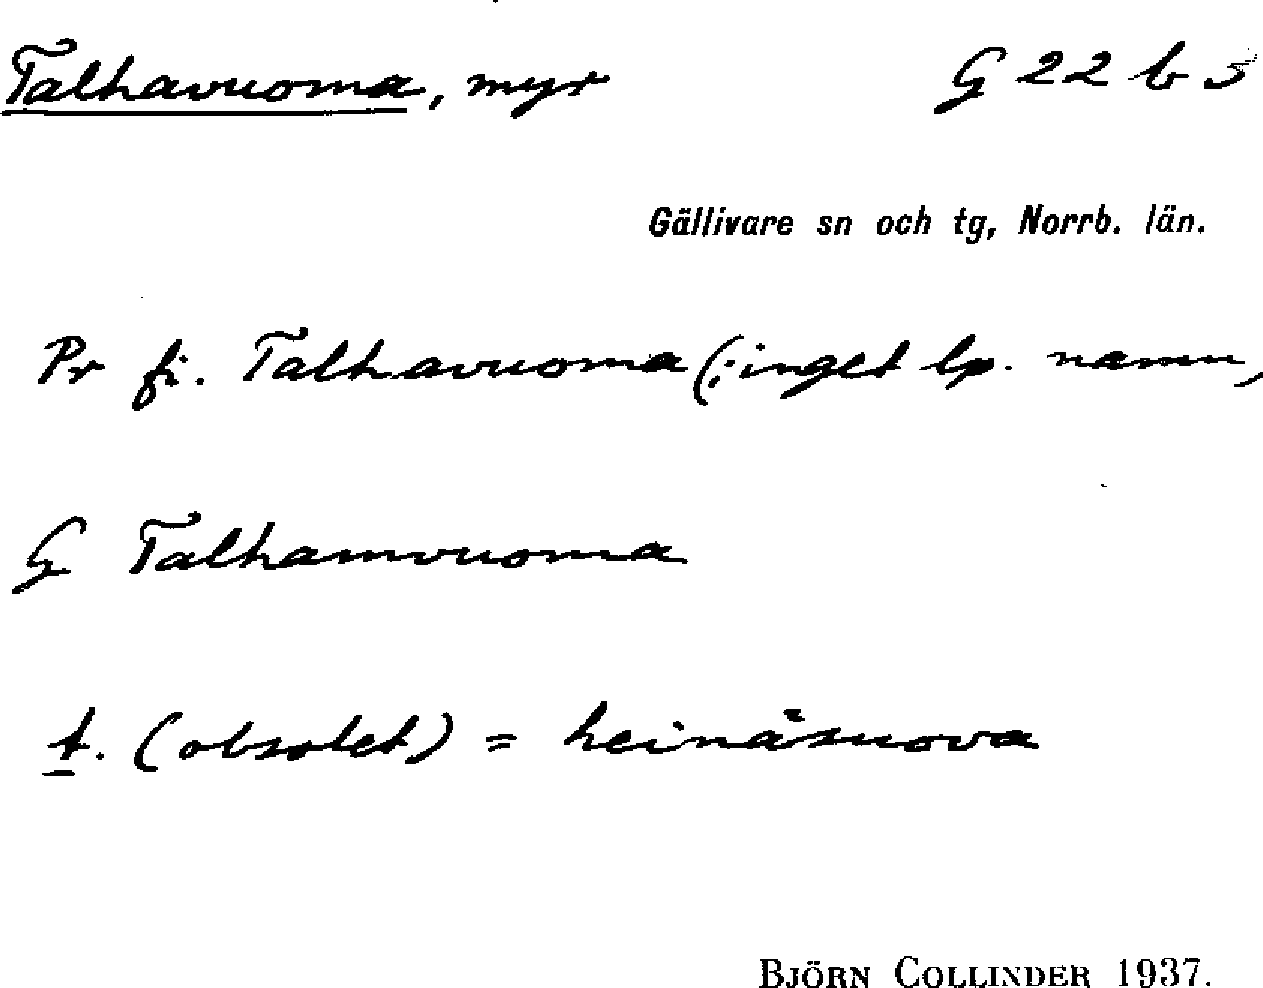 Talhavuoma, myr G 22 b 5
Gällivare sn och tg, Norrb. län.
Pr fi. Talhavuoma (: inget lp. namn,
G Talhamvuoma
t. (obsolet) = heinäsuova
BJÖRN COLLINDER 1937.